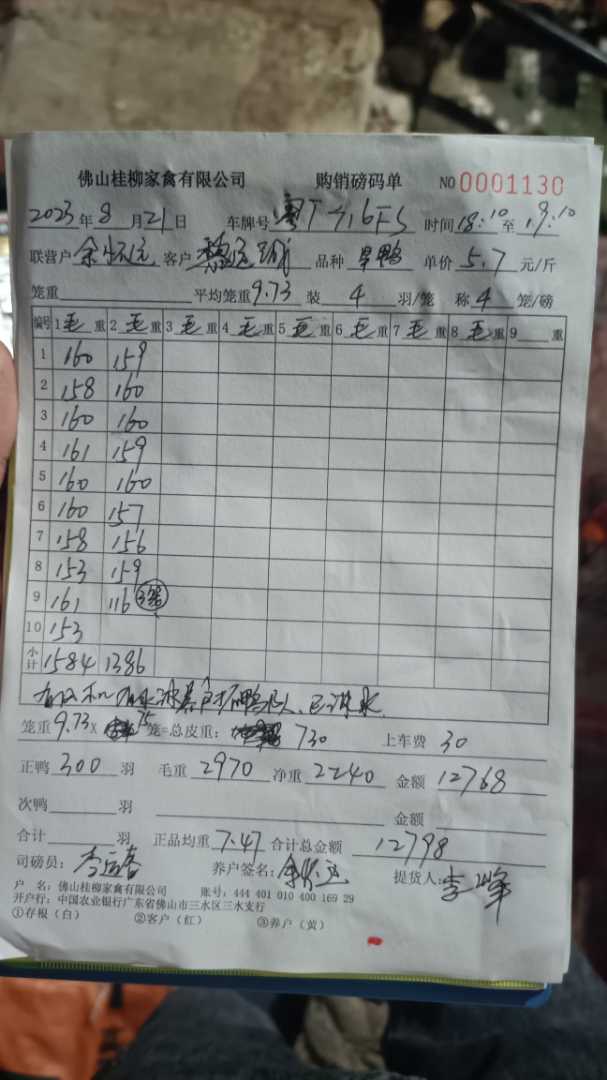 佛山桂柳家禽有限公司 购销磅码单 NO 0001130
2023年8月21日 车牌号 粤T 716FS 时间 18:10 至 19:10
联营户 客户 品种 旱鸭 单价 5.7 元/斤
笼重 平均笼重 9.73 装 4 羽/笼 称 4 笼/磅
编号 1 毛 重 2 毛 重 3 毛 重 4 毛 重 5 毛 重 6 毛 重 7 毛 重 8 毛 重 9 重
1 160 159
2 158 160
3 160 160
4 161 159
5 160 160
6 160 157
7 158 156
8 153 159
9 161 116 3笼
10 153
小计 1584 1386
笼重 9.73 × 75 笼=总皮重: 730 上车费 30
正鸭 300 羽 毛重 2970 净重 2240 金额 12768
次鸭 羽 金额
合计 羽 正品均重 7.47 合计总金额 12798
司磅员: 养户签名: 提货人:
户 名: 佛山桂柳家禽有限公司 账号: 444 401 010 400 169 29
开户行: 中国农业银行广东省佛山市三水区三水支行
①存根(白) ②客户(红) ③养户(黄)